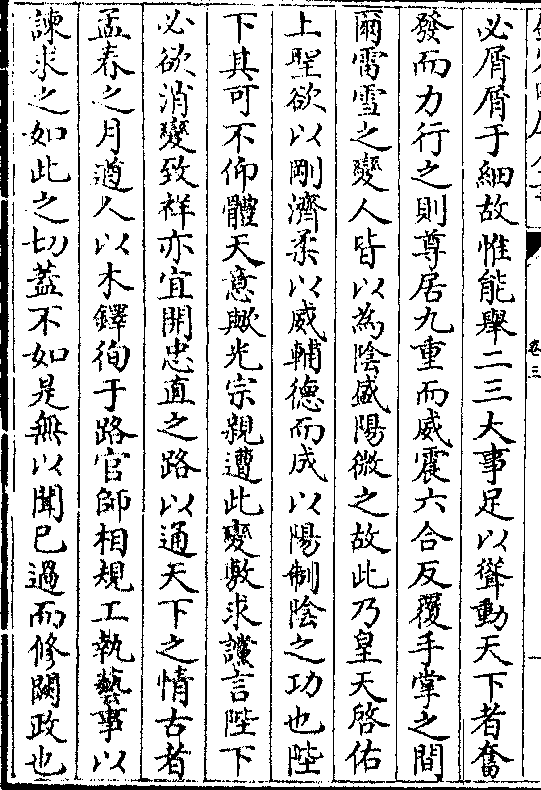 卷三
必屑屑于細故惟能舉二三大事足以聳動天下者奮
發而力行之則尊居九重而威震六合反覆手掌之間
爾雷雪之變人皆以為陰盛陽微之故此乃皇天啓佑
上聖欲以剛濟柔以威輔德而成以陽制陰之功也陛
下其可不仰體天意歟光宗親遭此變敷求讜言陛下
必欲消變致祥亦宜開忠直之路以通天下之情古者
孟春之月遒人以木鐸徇于路官師相規工執藝事以
諫求之如此之切蓋不如是無以聞已過而修闕政也